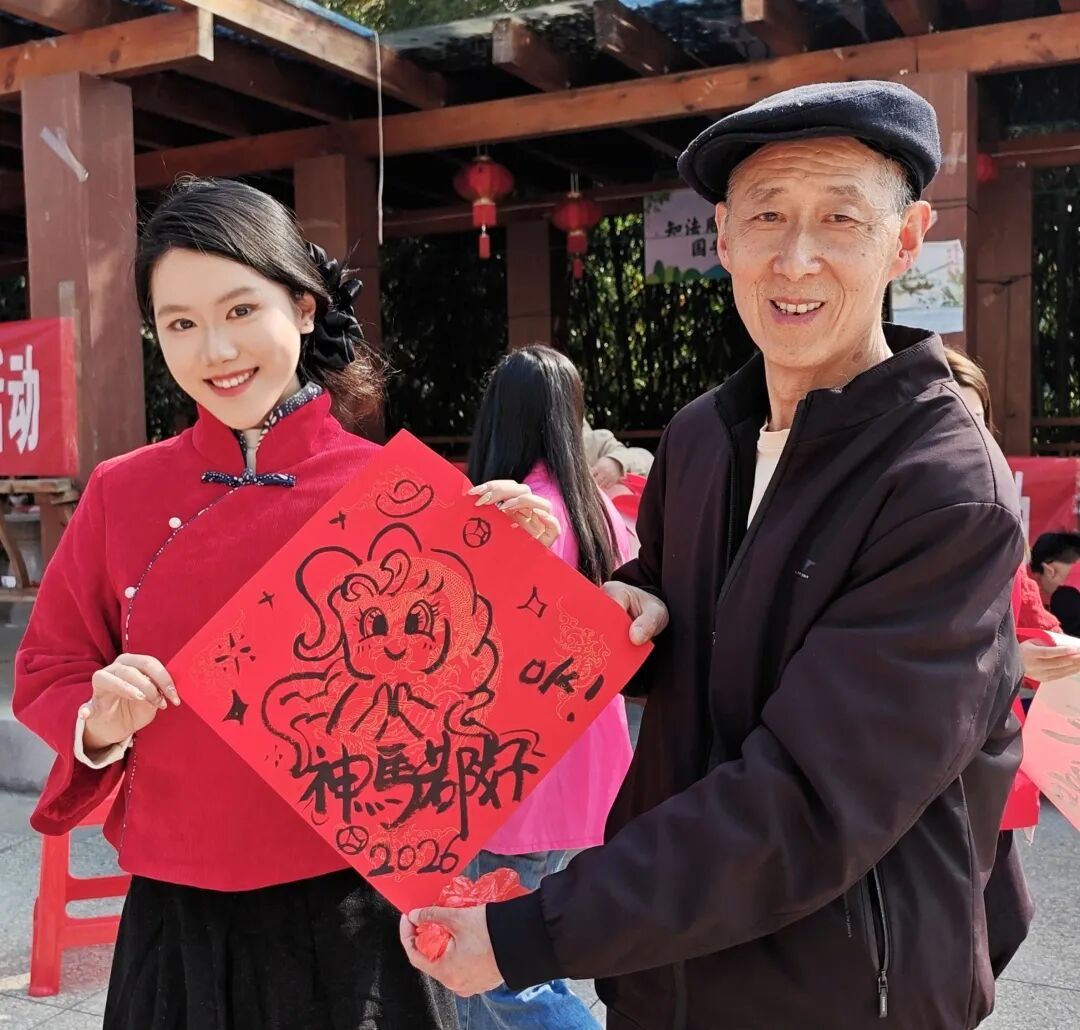 动
知法
国
OK!
神马都好
2026